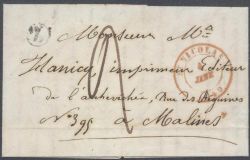 Monsieur
Hanicq, imprimeur Editeur
de l'archevêché, Rue des Béguines
N° 395 à Malines
NICOLAS